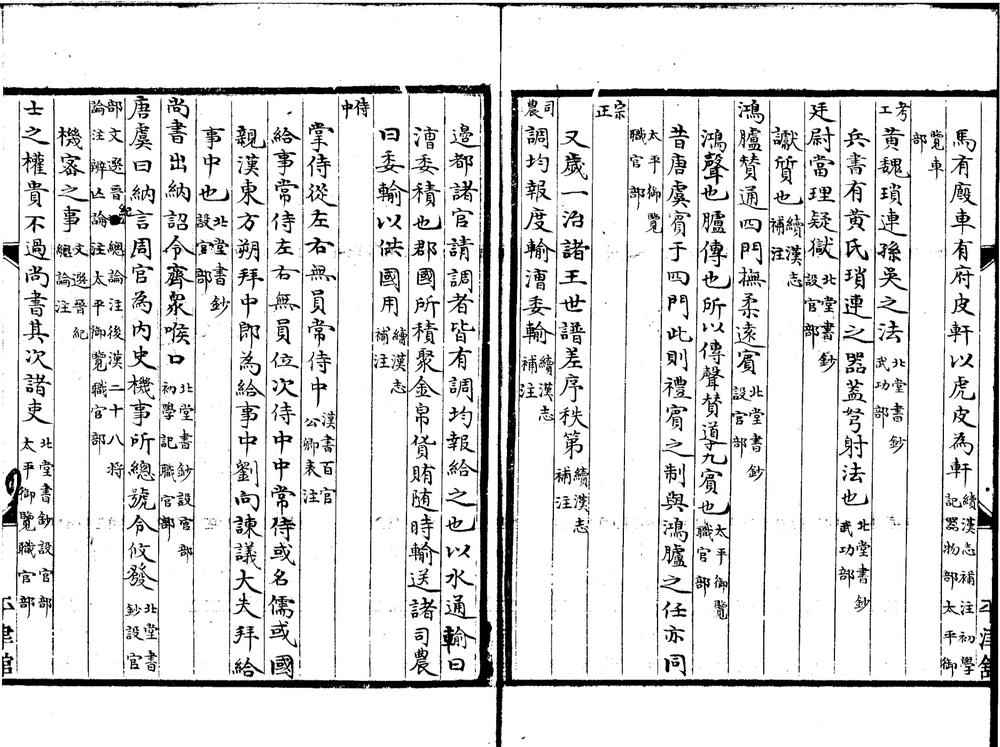 馬有廄車有府皮軒以虎皮為軒續漢志補注初學記器物部太平御
覽車部
考工
黃魏瑣連孫吳之法北堂書鈔武功部
兵書有黃氏瑣連之器蓋弩射法也北堂書鈔武功部
廷尉當理疑獄北堂書鈔設官部
讞質也續漢志補注
鴻臚贊通四門撫柔遠賓北堂書鈔設官部
鴻聲也臚傳也所以傳聲贊導九賓也太平御覽職官部
昔唐虞賓于四門此則禮賓之制與鴻臚之任亦同
太平御覽職官部
宗正
又歲一治諸王世譜差序秩第續漢志補注
司農
調均報度輸漕委輸續漢志補注
邊都諸官請調者皆有調均報給之也以水通輸曰
漕委積也郡國所積聚金帛貨賄隨時輸送諸司農
曰委輸以供國用續漢志補注
侍中
掌侍從左右無員常侍中漢書百官公卿表注
給事常侍左右無員位次侍中中常侍或名儒或國
親漢東方朔拜中郎為給事中劉向諫議大夫拜給
事中也北堂書鈔設官部
尚書出納詔令齊眾喉口北堂書鈔設官部初學記職官部
唐虞曰納言周官為內史機事所總號令攸發北堂書鈔設官
部文選晉紀總論注後漢二十八將論注辨亡論注太平御覽職官部
機密之事文選晉紀總論注
士之權貴不過尚書其次諸吏北堂書鈔設官部太平御覽職官部
平津館